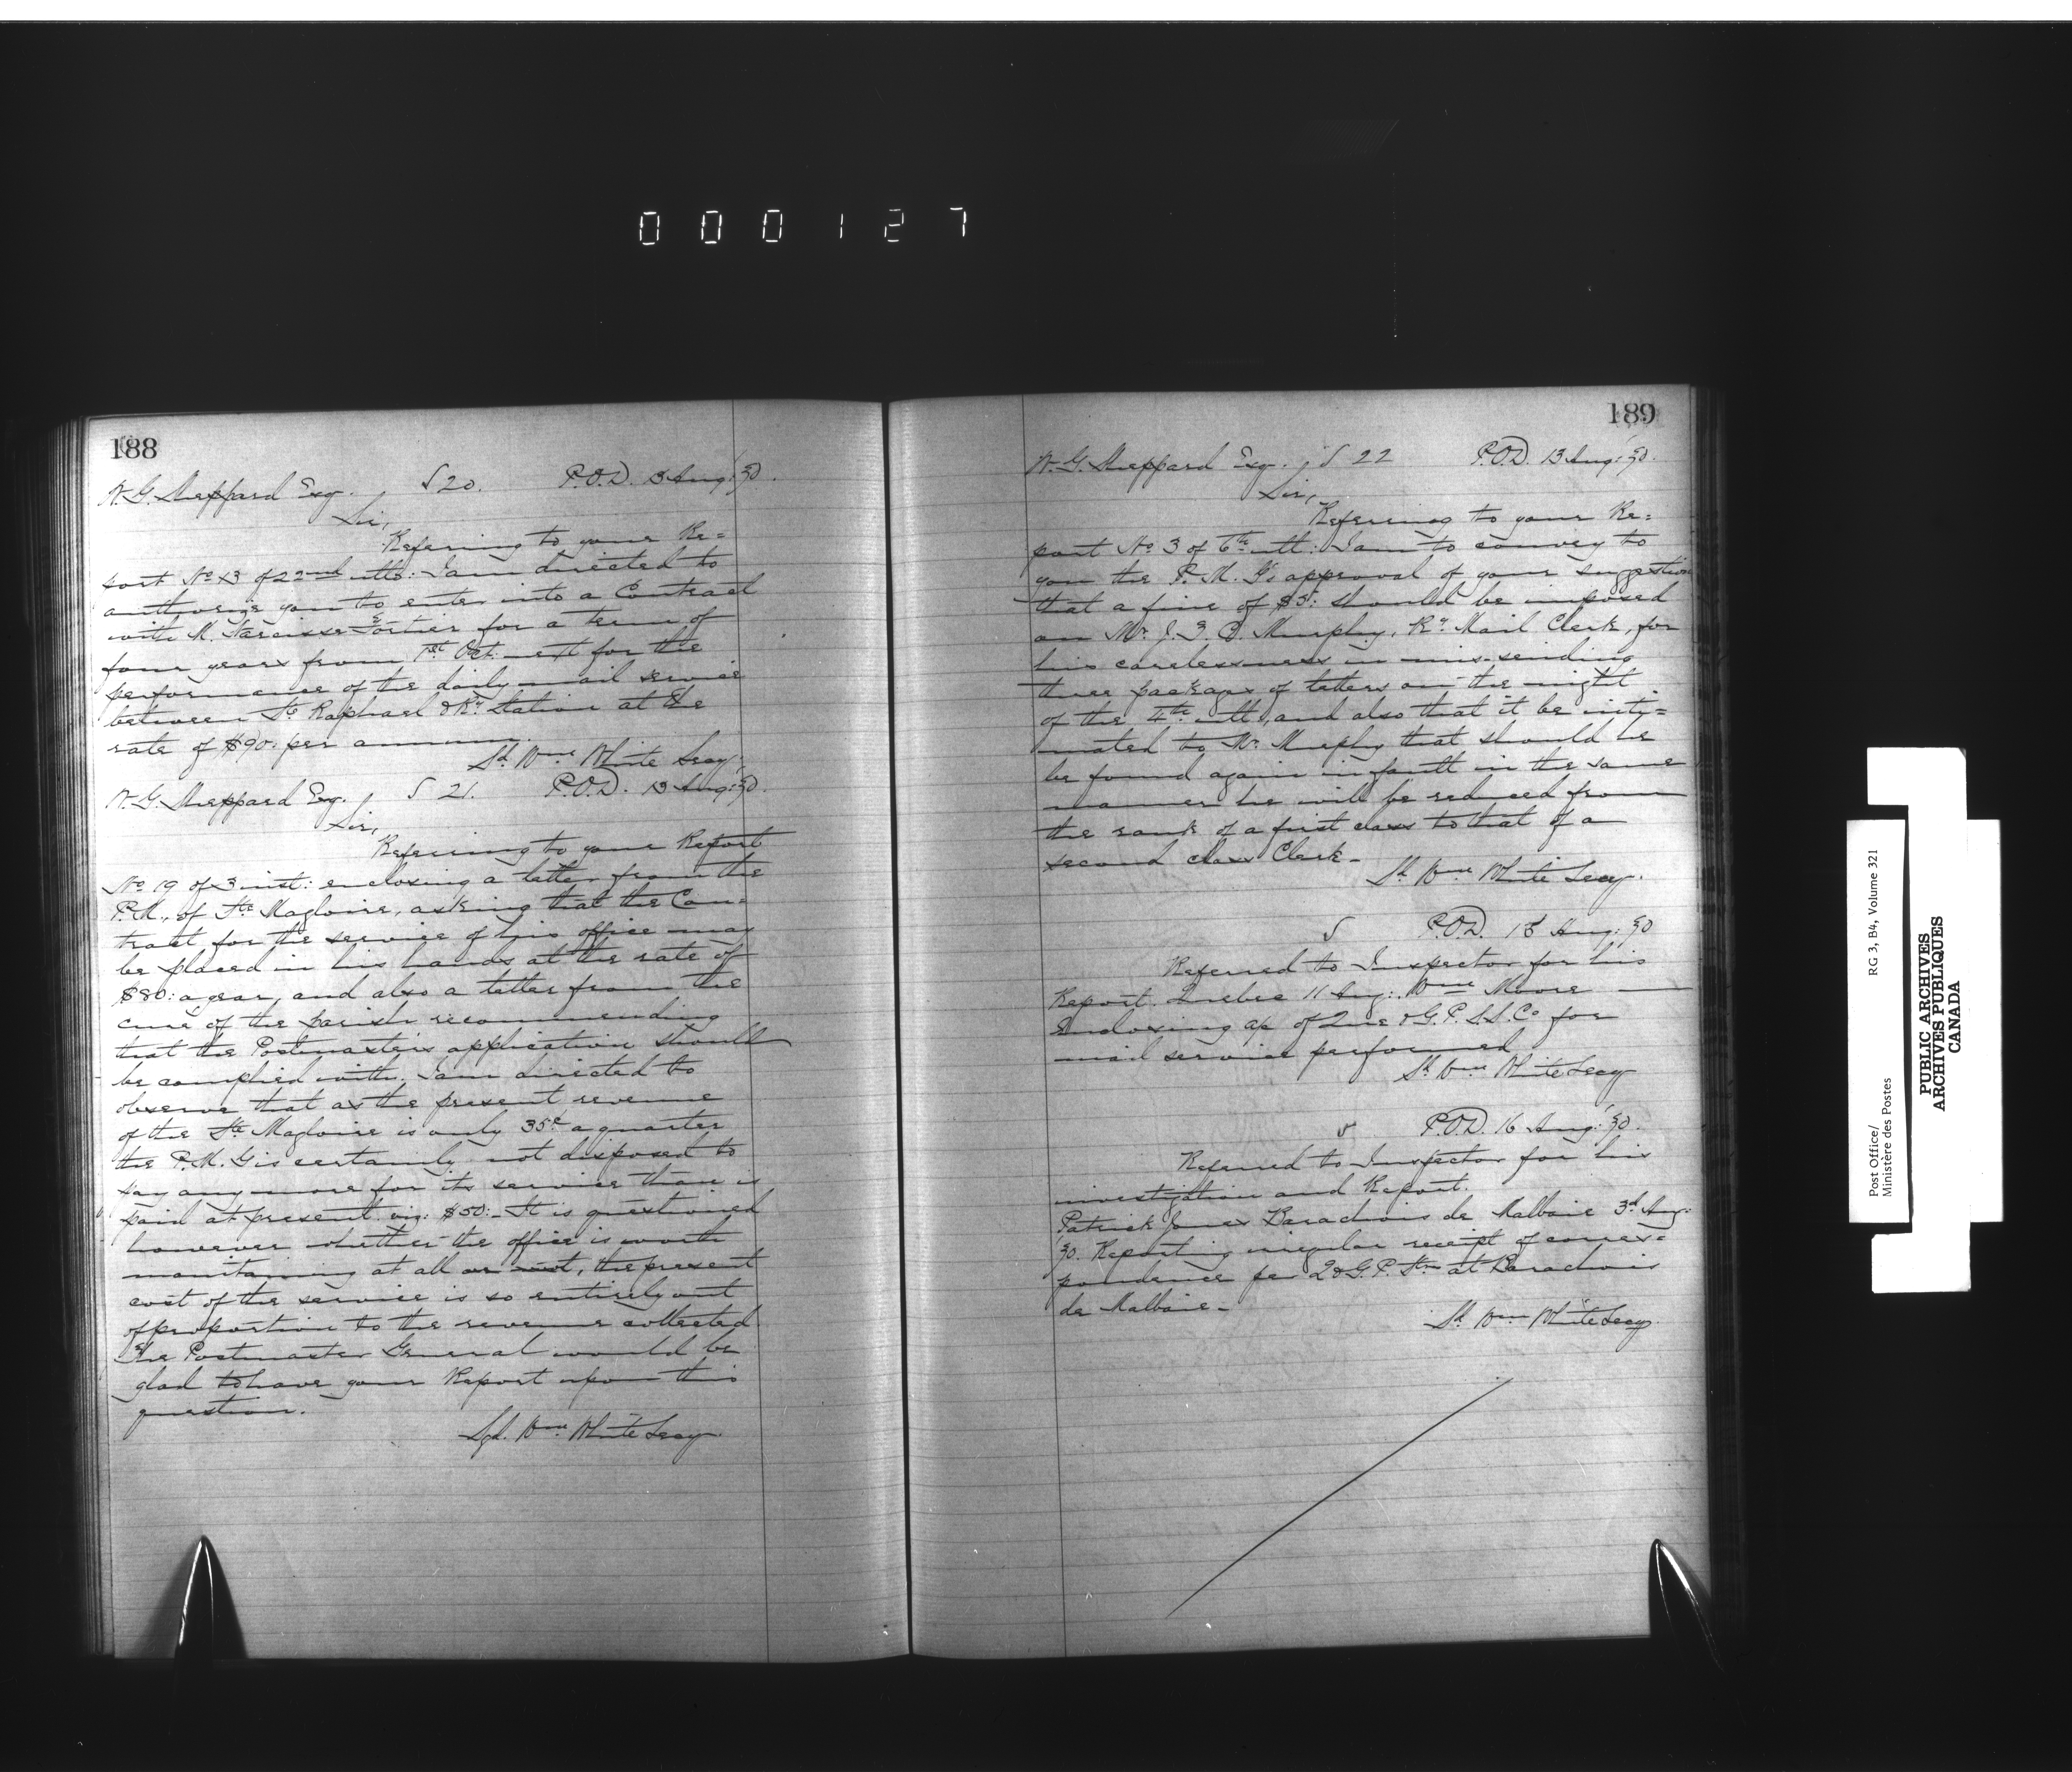 000127
188
W. G. Sheppard Esq. S 20. P.O.D. 13 Aug: '80.
Sir,
Referring to your Re=
port No 13 of 22nd ulto: I am directed to
authorize you to enter into a Contract
with M. Narcisse Fortier for a term of
four years from 1st Oct: next for the
performance of the daily mail service
between St Raphael & Ry Station at the
rate of $90. per annum.
Sd Wm White Secy.
W. G. Sheppard Esq. S 21. P.O.D. 13 Aug: '80.
Sir,
Referring to your Report
No 19 of 3 inst: enclosing a letter from the
P.M., of Ste Magloire, asking that the Con=
tract for the service of his office may
be placed in his hands at the rate of
$80: a year, and also a letter from the
cure of the parish recommending
that the Postmaster's application should
be complied with. I am directed to
observe that as the present revenue
of the Ste Magloire is only 35¢ a quarter
the P.M.G is certainly not disposed to
pay any more for its service than is
paid at present viz: $50:- It is questioned
however whether the office is worth
maintaining at all or not, the present
cost of the service is so entirely out
of proportion to the revenue collected
The Postmaster General would be
glad to have your Report upon this
question.
Sgd. Wm White Secy.
189
W. G. Sheppard Esq. S 22 P.O.D. 13 Aug: '80.
Sir,
Referring to your Re=
port No 3 of 6th ult: I am to convey to
you the P.M.G's approval of your suggestion
that a fine of $5: should be imposed
on Mr J. F. Murphy, Ry Mail Clerk, for
his carelessness in mis-sending
three packages of letters on the night
of the 4th ult, and also that it be inti=
mated to Mr Murphy that should he
be found again in fault in the same
manner he will be reduced from
the rank of a first class to that of a
second class Clerk-
Sd Wm White Secy.
S P.O.D. Aug: '80
Referred to Inspector for his
Report. Quebec 11 Aug: Wm Moore
Enclosing a/c of Que & G.P.S.S. Co for
mail service performed
Sd Wm White Secy
P.O.D. 16 Aug: '80.
Referred to Inspector for his
investigation and Report.
Patrick Jones Barachois de Malbaie 3d Aug:
'80. Reporting irregular receipt of corres=
pondence per Q & G.P. Str at Barachois
de Malbaie-
Sd Wm White Secy.
Post Office/ RG 3, B4, Volume 321
Ministère des Postes
PUBLIC ARCHIVES
ARCHIVES PUBLIQUES
CANADA